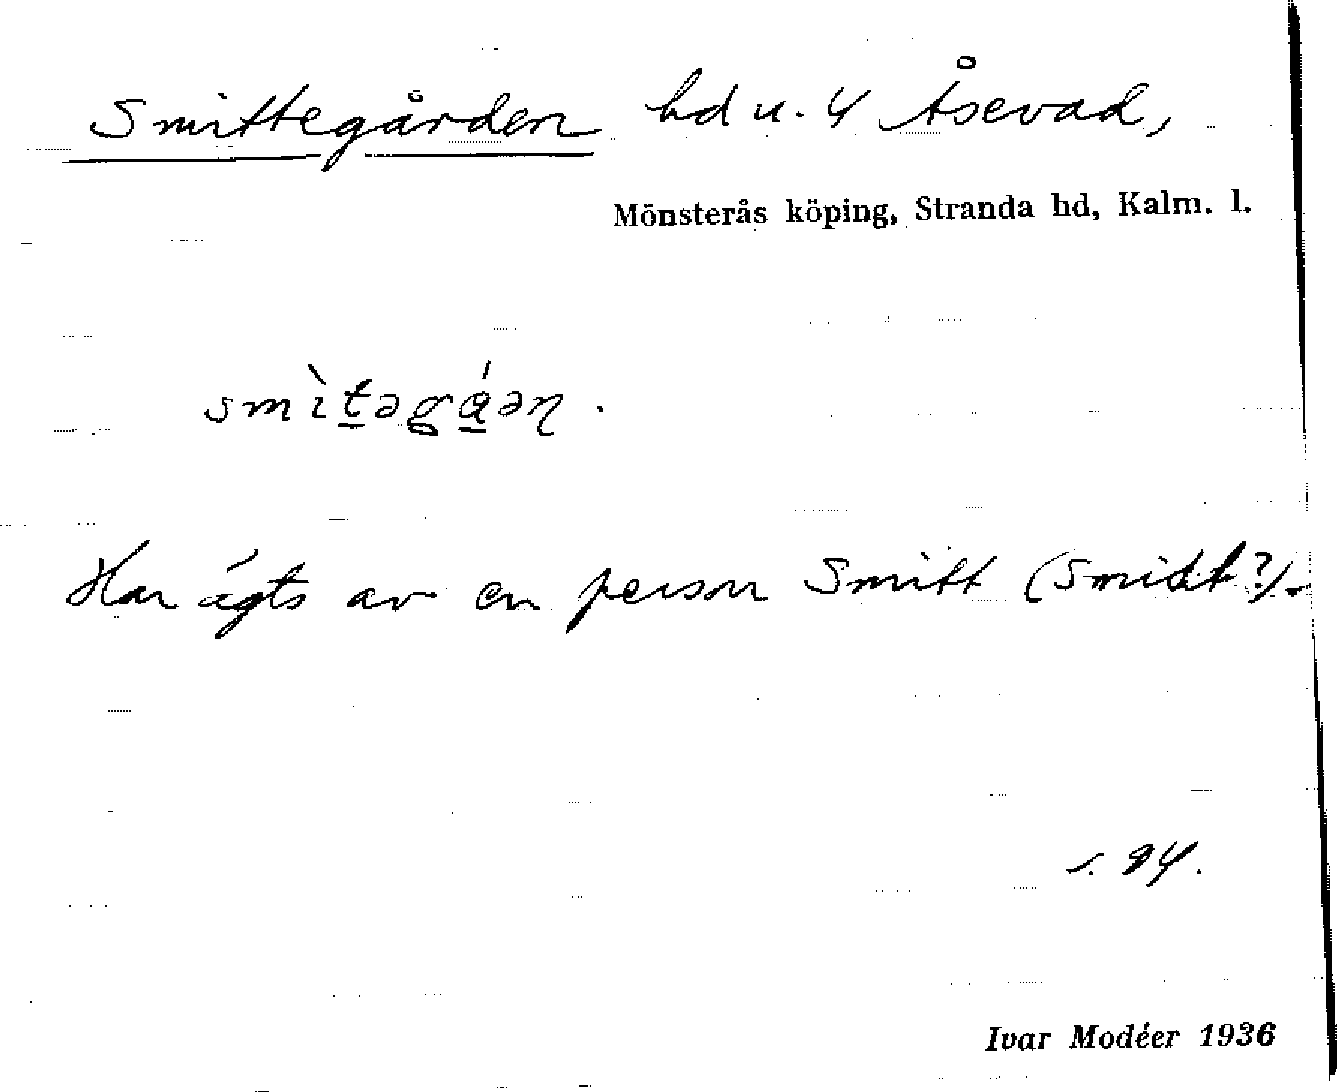 Smittegården hd u. 4 Åsevad,
Mönsterås köping, Stranda hd, Kalm. l.
smìtəgáən.
Har ägts av en person Smitt (Smidt?)-
s. 94.
Ivar Modéer 1936